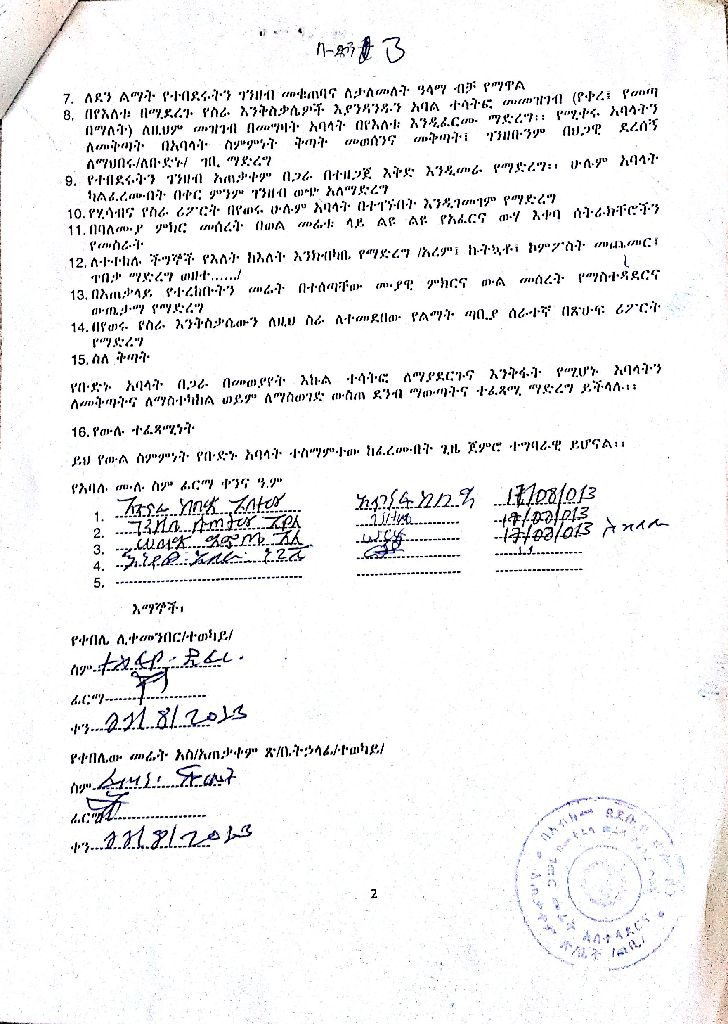 ቡድን 3
7. ለደን ልማት የተበደሩትን ገንዘብ መቁጠባና ለታለመለት ዓላማ ብቻ የማዋል
8. በየእለቱ በሚደረጉ የስራ እንቅስቃሴዎች እያንዳንዱን አባል ተሳትፎ መመዝገብ (የቀረ፤ የመጣ
በማለት) ለዚህም መዝገብ በመግዛት አባላት በየእለቱ እንዲፈርሙ ማድረግ፡፡ የሚቀሩ አባላትን
ለመቅጣት በአባላት ስምምነት ቅጣት መወሰንና መቅጣት፤ ገንዘቡንም በህጋዊ ደረሰኝ
ለማህበሩ/ለቡድኑ/ ገቢ ማድረግ
9. የተበደሩትን ገንዘብ አጠቃቀም በጋራ በተዘጋጀ እቅድ እንዲመራ የማድረግ፡፡ ሁሉም አባላት
ካልፈረሙበት በቀር ምንም ገንዘብ ወጭ አለማድረግ
10. የሂሳብና የስራ ሪፖርት በየወሩ ሁሉም አባላት በተገኙበት እንዲገመገም የማድረግ
11. በባለሙያ ምክር መሰረት በወል መሬቱ ላይ ልዩ ልዩ የአፈርና ውሃ እቀባ ስትራክቸሮችን
የመስራት
12. ለተተከሉ ችግኞች የእለት ከእለት እንክብካቤ የማድረግ /አረም፤ ኩትኳቶ፤ ኮምፖስት መጨመር፤
ጥበቃ ማድረግ ወዘተ....../
13. በአጠቃላይ የተረከቡትን መሬት በተሰጣቸው ሙያዊ ምክርና ውል መሰረት የማስተዳደርና
ውጤታማ የማድረግ
14. በየወሩ የስራ እንቅስቃሴውን ለዚህ ስራ ለተመደበው የልማት ጣቢያ ሰራተኛ በጽሁፍ ሪፖርት
የማድረግ
15. ስለ ቅጣት
የቡድኑ አባላት በጋራ በመወያየት እኩል ተሳትፎ ለማያደርጉና እንቅፋት የሚሆኑ አባላትን
ለመቅጣትና ለማስተካከል ወይም ለማስወገድ ውስጠ ደንብ ማውጣትና ተፈጻሚ ማድረግ ይችላሉ፡፡
16. የውሉ ተፈጻሚነት
ይህ የውል ስምምነት የቡድኑ አባላት ተስማምተው ከፈረሙበት ጊዜ ጀምሮ ተግባራዊ ይሆናል፡፡
የአባሉ ሙሉ ስም ፊርማ ቀንና ዓ.ም
1. 17/08/013
2. 17/08/013
3. 17/08/013
4.
5.
እማኞች፡
የቀበሌ ሊቀመንበር/ተወካይ/
ስም
ፊርማ
ቀን 22/8/2013
የቀበሌው መሬት አስ/አጠቃቀም ጽ/ቤት ኃላፊ/ተወካይ/
ስም
ፊርማ
ቀን 22/8/2013
2